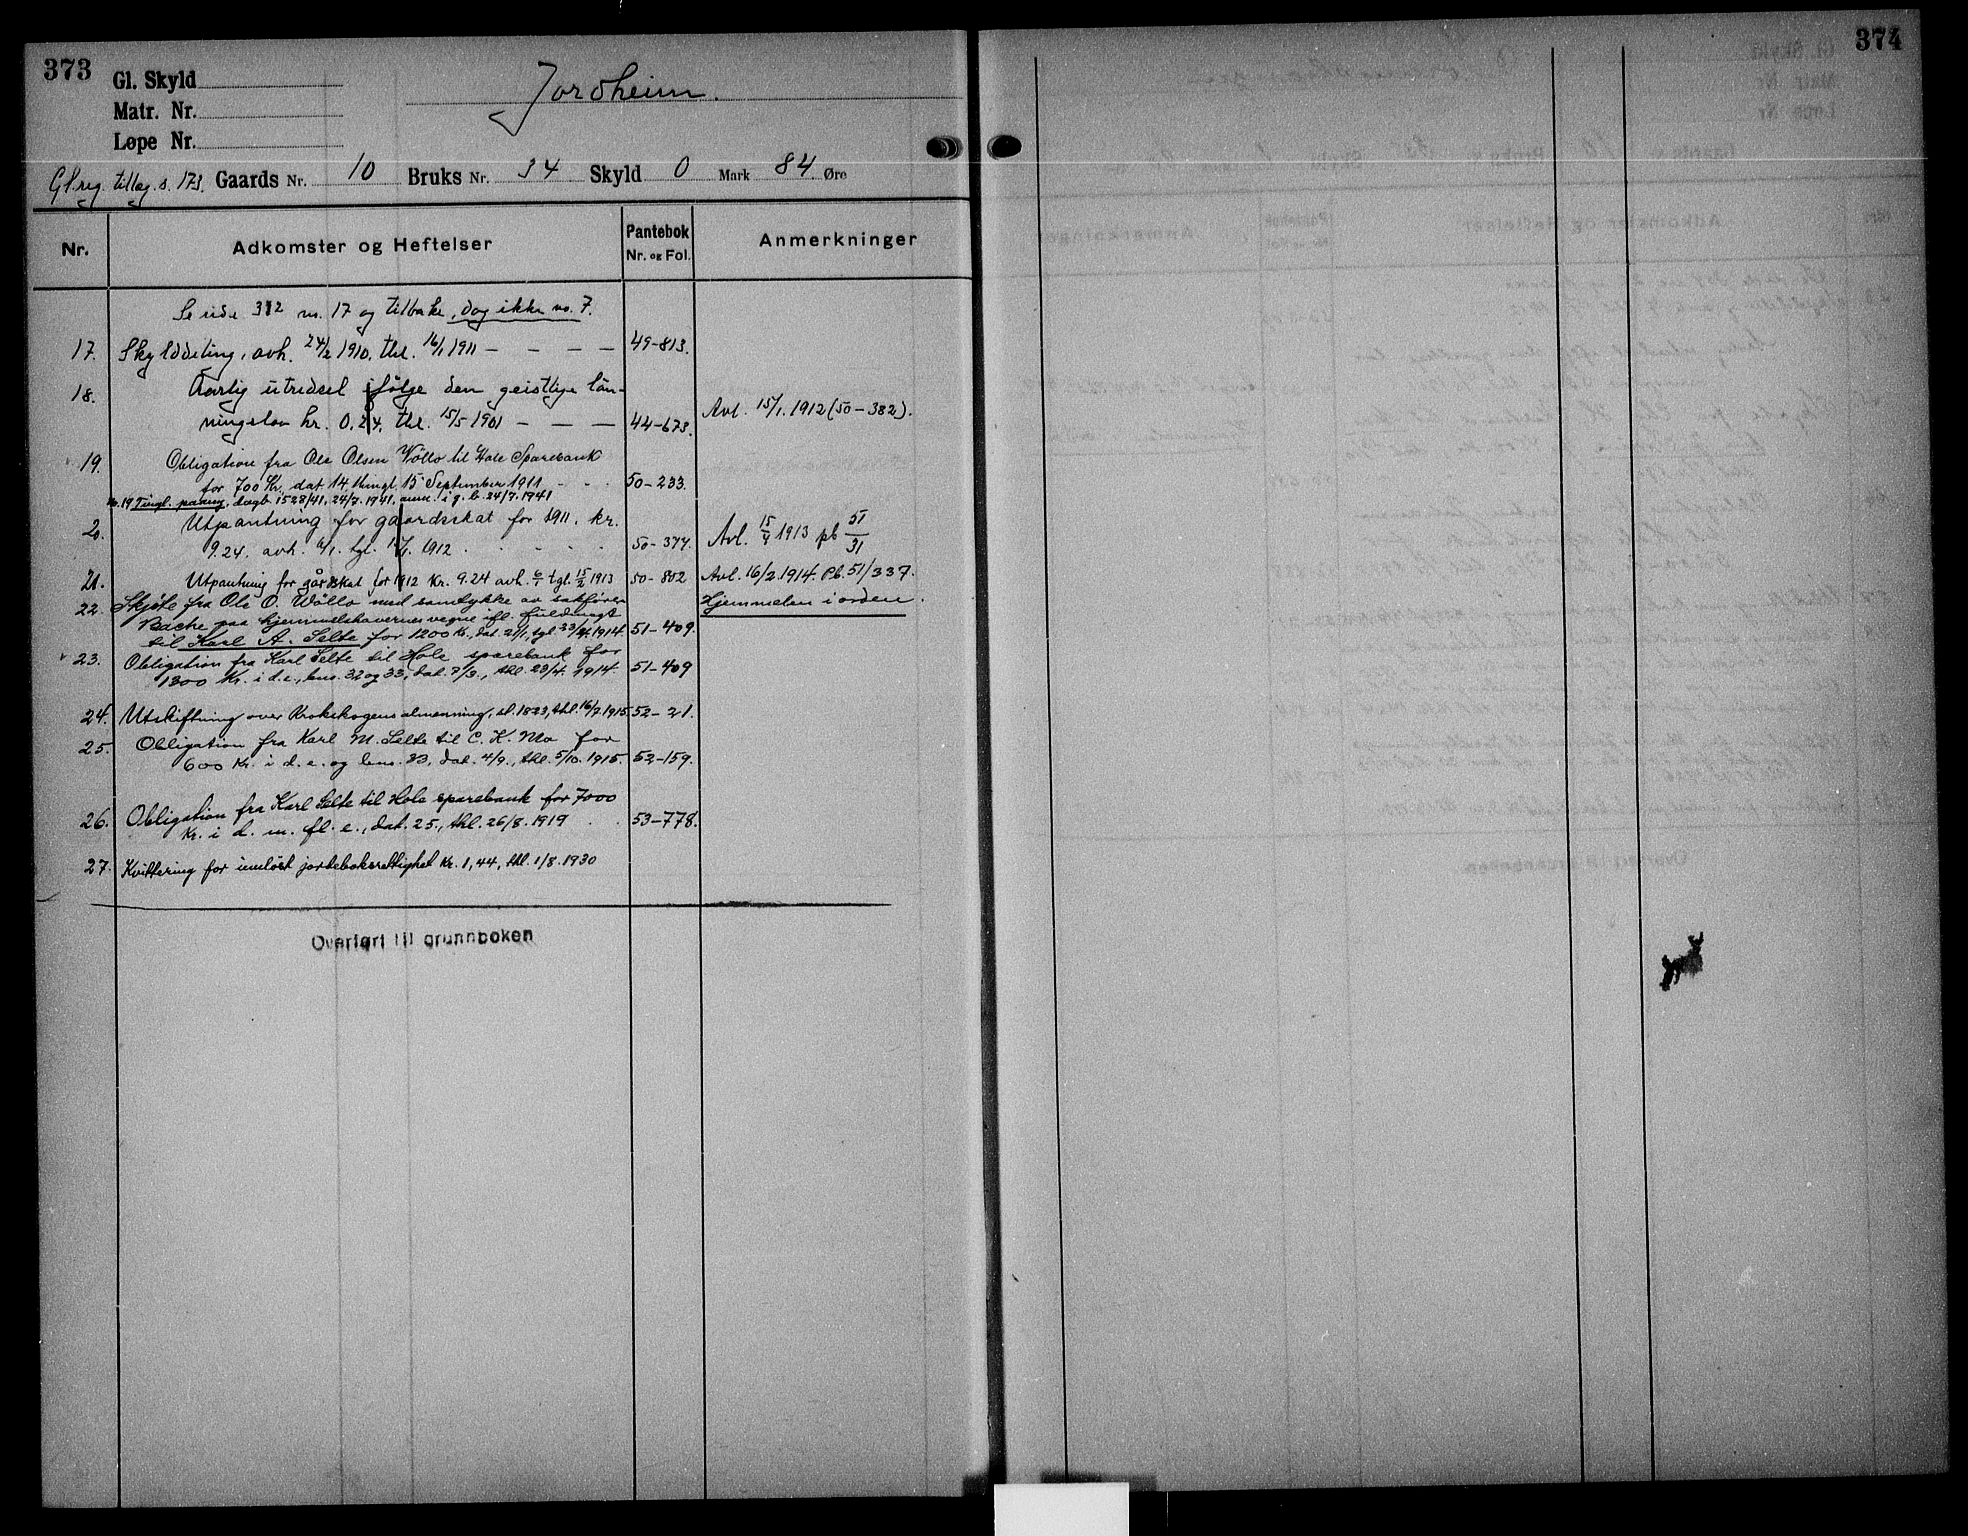 373
Gl. Skyld
Matr. Nr.
Løpe Nr.
Jordheim.
Gl. reg. tillæg. s. 173. Gaards Nr. 10 Bruks Nr. 34 Skyld 0 Mark 84 Øre
Nr. Adkomster og Heftelser Pantebok Nr. og Fol. Anmerkninger
Se side 372 no. 17 og tilbake, dog ikke no. 7.
17. Skylddeling, avh. 24/2 1910, thl. 16/1 1911 - - - - 49-813.
18. Aarlig utredsel ifølge den geistlige løn-
ningslov kr. 0,24, thl. 15/5 1901 - - - 44-673. Avl. 15/1. 1912 (50-382).
19. Obligation fra Ole Olsen Wöllo til Hole Sparebank
for 700 Kr. dat 14, thingl. 15 September 1911 - - - 50-233.
no. 19 Tingl. paany, dagb. 1528/41, 24/7. 1941, anm. i g. b. 24/7. 1941
20. Utpantning for gaardsskat for 1911, kr.
9.24. avh. 6/1. tgl. 1912 50-377. Avl. 15/4 1913 pb 51/31
21. Utpantning for gårdskat for 1912 Kr. 9.24 avh. 6/1 tgl. 15/2 1913 50-802 Avl. 16/2. 1914. Pb. 51/337.
22. Skjøte fra Ole O. Wöllo med samtykke av sakfører
Bache paa hjemmelshavernes vegne ifl. fuldmagt
til Karl A. Selte for 1200 Kr., dat. 21/1, tgl 23/4. 1914. 51-409. Hjemmelen i orden.
23. Obligation fra Karl Selte til Hole sparebank for
1300 Kr. i d. e., bns. 32 og 33, dat. 7/3., thl. 23/4. 1914. 51-409
24. Utskiftning over Krokskogens almenning, sl. 1823, thl. 16/7. 1915. 52-21.
25. Obligation fra Karl M. Selte til C. K. Mo for
600 Kr. i d. e. og bns. 33, dat. 4/9., thl. 5/10. 1915. 52-159.
26. Obligation fra Karl Selte til Hole sparebank for 7000
Kr. i d. m. fl. e., dat. 25., thl. 26/8. 1919 53-778.
27. Kvittering for innløst jordeboksrettighet Kr. 1,44, thl. 1/8. 1930
Overført til grunnboken
374